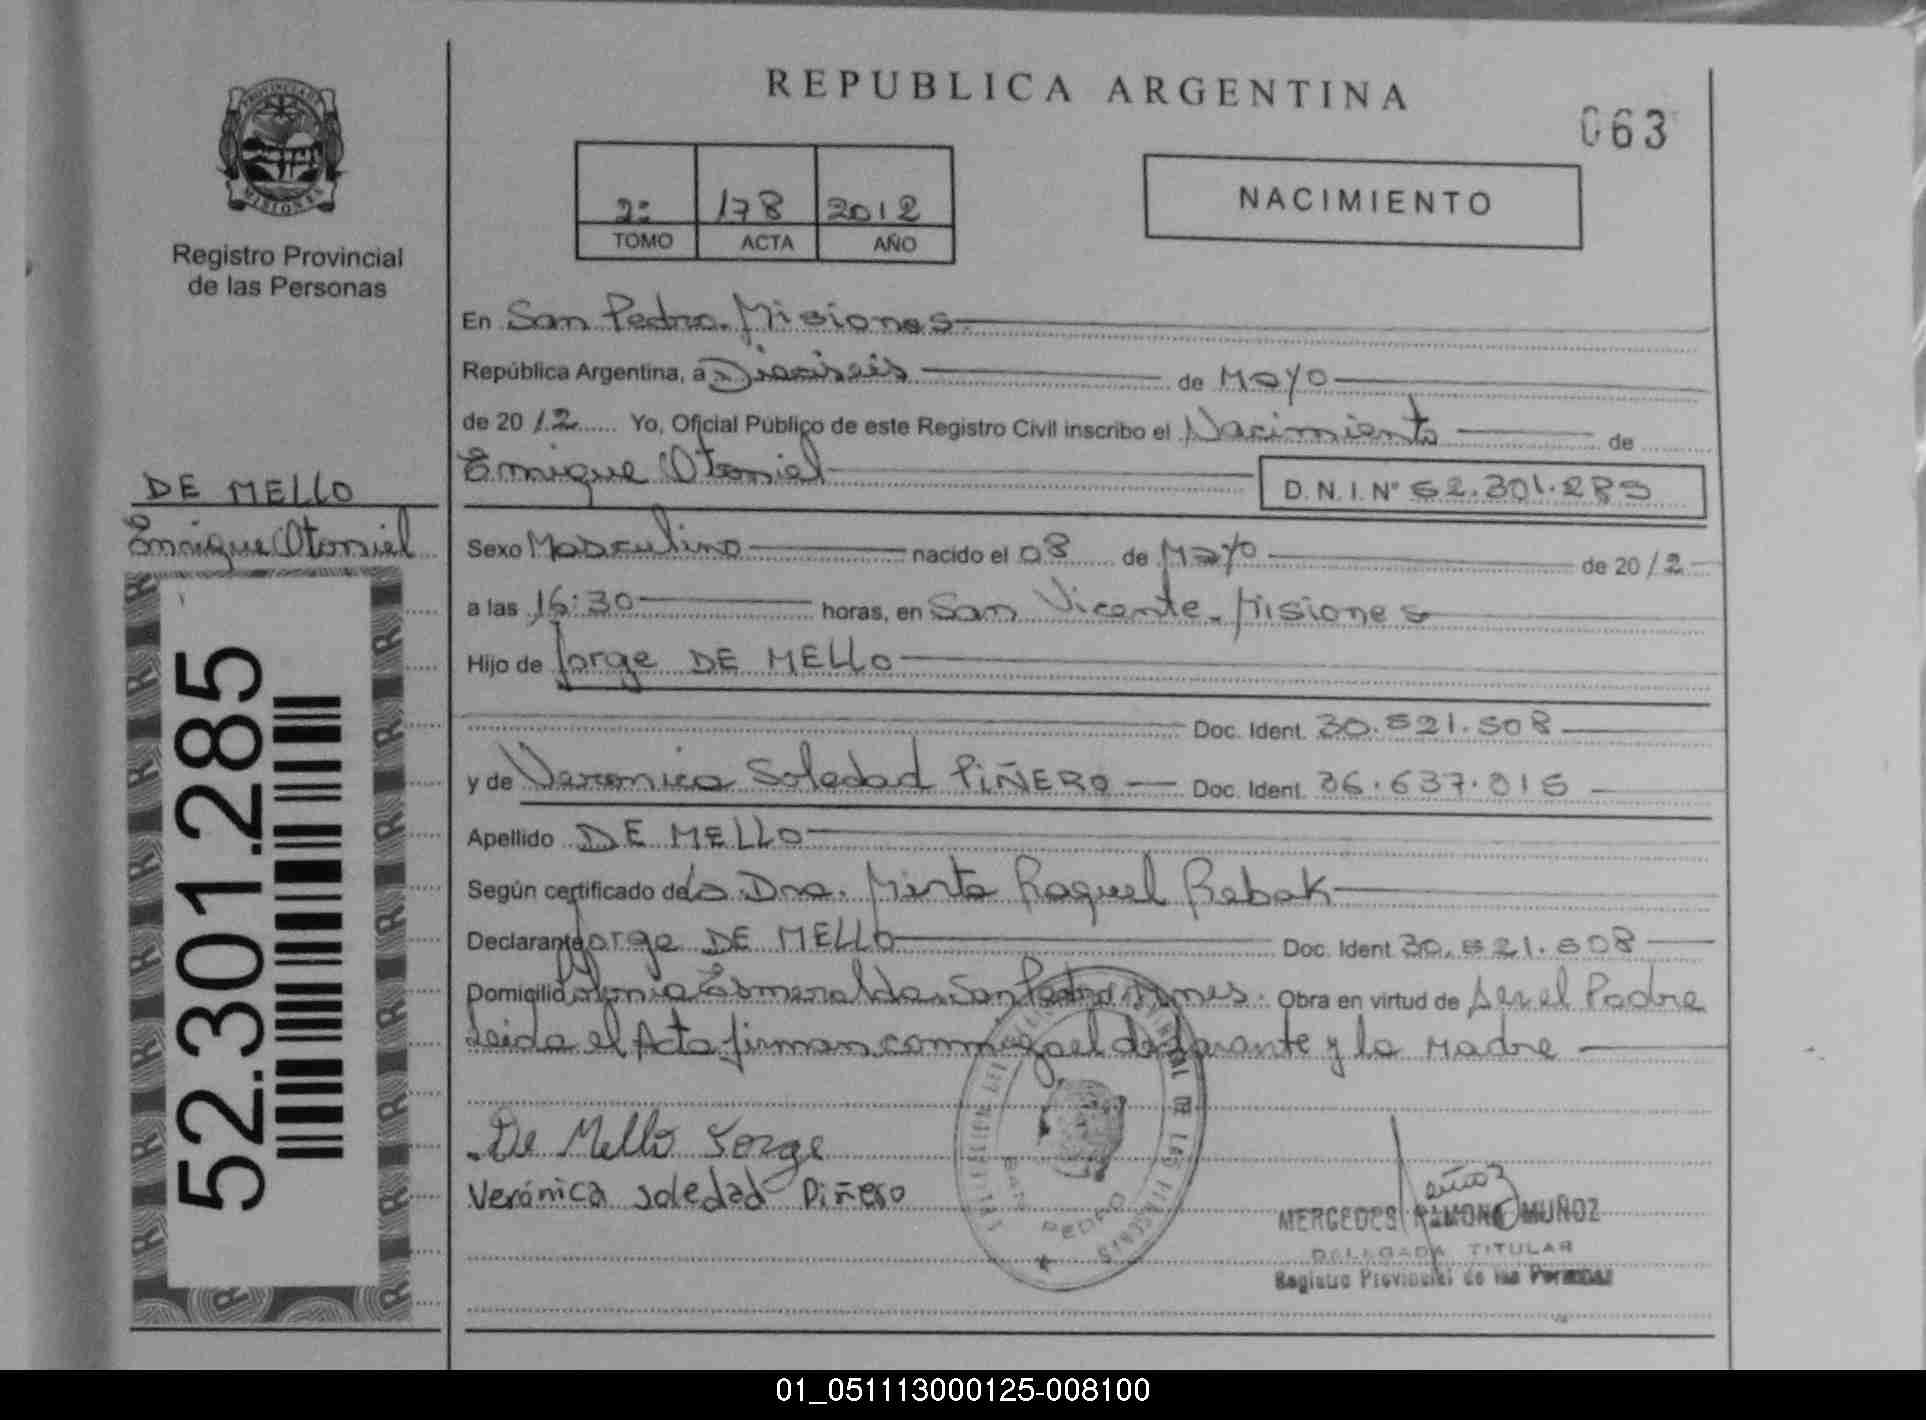 REPUBLICA ARGENTINA
063
PROVINCIA DE MISIONES
Registro Provincial
de las Personas
2º 178 2012
TOMO ACTA AÑO
NACIMIENTO
En San Pedro. Misiones
República Argentina, a Dieciseis de Mayo
de 2012 Yo, Oficial Público de este Registro Civil inscribo el Nacimiento de
Enrique Otoniel
D.N.I. Nº 52.301.285
DE MELLO
Enrique Otoniel
52.301.285
Sexo Masculino nacido el 08 de Mayo de 2012
a las 16:30 horas, en San Vicente. Misiones
Hijo de Jorge DE MELLO
Doc. Ident. 30.521.508
y de Veronica Soledad PIÑERO Doc. Ident. 36.637.015
Apellido DE MELLO
Según certificado de la Dra. Mirta Raquel Rebak
Declarante Jorge DE MELLO Doc. Ident. 30.521.508
Domicilio Colonia Esmeralda. San Pedro. Mnes. Obra en virtud de ser el Padre
Leida el Acta firman conmigo el declarante y la Madre
De Mello Jorge
Verónica Soledad Piñero
SAN PEDRO
MERCEDES RAMONA MUÑOZ
DELEGADA TITULAR
Registro Provincial de las Personas
01_051113000125-008100